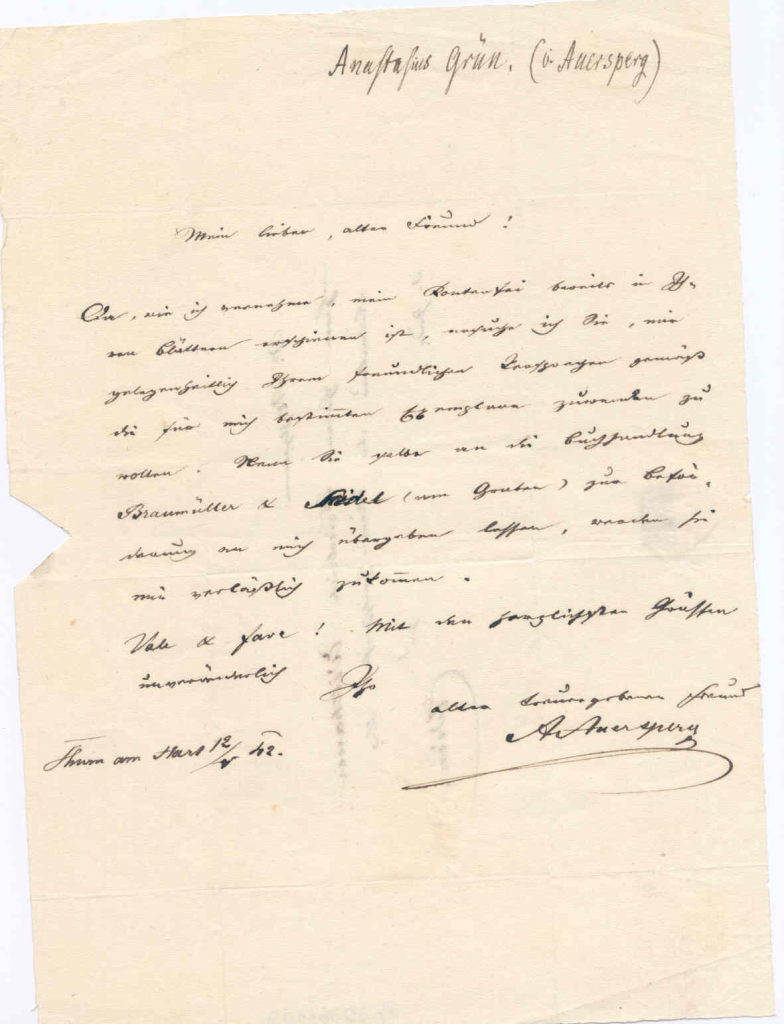 Anastasius Grün. (v. Auersperg)
Mein lieber, alter Freund!
Da, wie ich vernehme, mein Konterfei bereits in Ih-
ren Blättern erschienen ist, ersuche ich Sie, mir
gelegenheitlich Ihrem freundlichen Versprechen gemäß
die für mich bestimmten Exemplare zuwenden zu
wollen. Wenn Sie selbe an die Buchhandlung
Braumüller & Seidel (am Graben) zur Beför-
derung an mich übergeben lassen, werden sie
mir verläßlich zukommen.
Vale & fave! Mit den herzlichsten Grüssen
unveränderlich Ihr
alter treuergebener Freund
A Auersperg
Thurn am Hart 12/V 42.